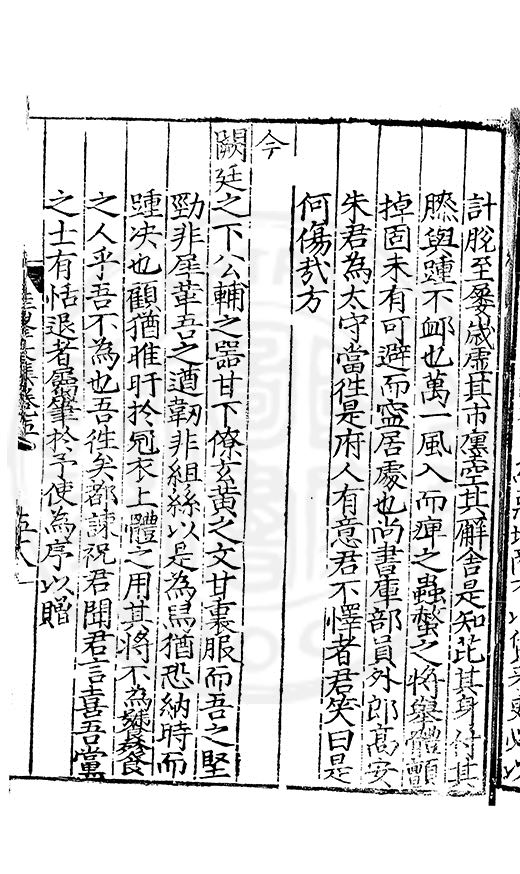 計脫至屢歲虛其市廛空其廨舍是知芘其身待其
膝與踵不衈也萬一風入而痺之蟲螫之將舉體顫
掉固未有可避而寍居處也尚書庫部員外郎高安
朱君為太守當徃是府人有意君不懌者君笑曰是
何傷哉方
今
闕廷之下公輔之器甘下僚玄黃之文甘裏服而吾之堅
勁非犀革吾之遒韌非組絲以是為舄猶恐納時而
踵决也顧猶睢盱扵冠衣上體之用其將不為
之人乎吾不為也吾徃矣都諫祝君聞君言喜吾黨
之士有恬退者屬筆扵予使為序以贈
五八